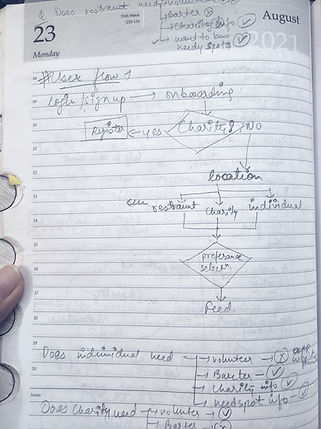 Q. Does restraunt need volunteer
Barter
Charity info
want to know
needy spots
35th Week
235-130
23
Monday
August
2021
#User flow 1
Login/signup → onboarding
Register ← yes ← Charity? NO
location
restraunt Charity individual
preferance
selectn
Feed
Does individual need volunteer X
Barter ✓
Charity info ✓
needspot info ✓
Notes
Does Charity need volunter ✓
Barter